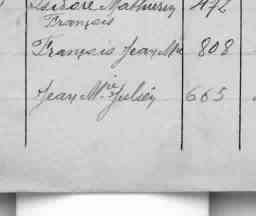 Isidore Mathurin 472
François
François Jean Me 808
Jean Mie Julien 665